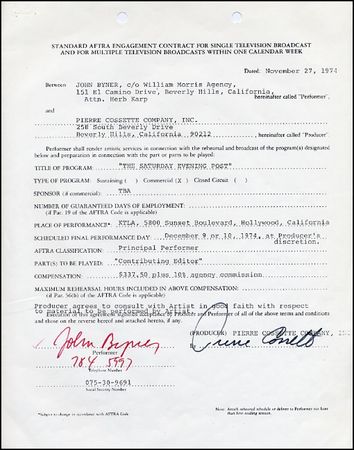 STANDARD AFTRA ENGAGEMENT CONTRACT FOR SINGLE TELEVISION BROADCAST
AND FOR MULTIPLE TELEVISION BROADCASTS WITHIN ONE CALENDAR WEEK
Dated: November 27, 1974
Between JOHN BYNER, c/o William Morris Agency,
151 El Camino Drive, Beverly Hills, California,
Attn. Herb Karp hereinafter called "Performer".
and PIERRE COSSETTE COMPANY, INC.
258 South Beverly Drive
Beverly Hills, California 90212 hereinafter called "Producer".
Performer shall render artistic services in connection with the rehearsal and broadcast of the program(s) designated
below and preparation in connection with the part or parts to be played:
TITLE OF PROGRAM: "THE SATURDAY EVENING POST"
TYPE OF PROGRAM: Sustaining ( ) Commercial (X) Closed Circuit ( )
SPONSOR (if commercial): TBA
NUMBER OF GUARANTEED DAYS OF EMPLOYMENT:
(if Par. 19 of the AFTRA Code is applicable)
PLACE OF PERFORMANCE: KTLA, 5800 Sunset Boulevard, Hollywood, California
SCHEDULED FINAL PERFORMANCE DAY: December 9 or 10, 1974, at Producer's
discretion.
AFTRA CLASSIFICATION: Principal Performer
PART(S) TO BE PLAYED: "Contributing Editor"
COMPENSATION: $337.50 plus 10% agency commission
MAXIMUM REHEARSAL HOURS INCLUDED IN ABOVE COMPENSATION:
(if Par. 56(b) of the AFTRA Code is applicable)
Producer agrees to consult with Artist in good faith with respect
to material to be performed by Artist.
Execution of this agreement signifies acceptance by Producer and Performer of all of the above terms and conditions
and those on the reverse hereof and attached hereto, if any.
(PRODUCER) PIERRE COSSETTE COMPANY, INC
John Byner
Performer
784 5997
Telephone Number
By
075-30-9691
Social Security Number
*Subject to change in accordance with AFTRA Code
Note: Attach rehearsal schedule or deliver to Performer not later
than first reading session.